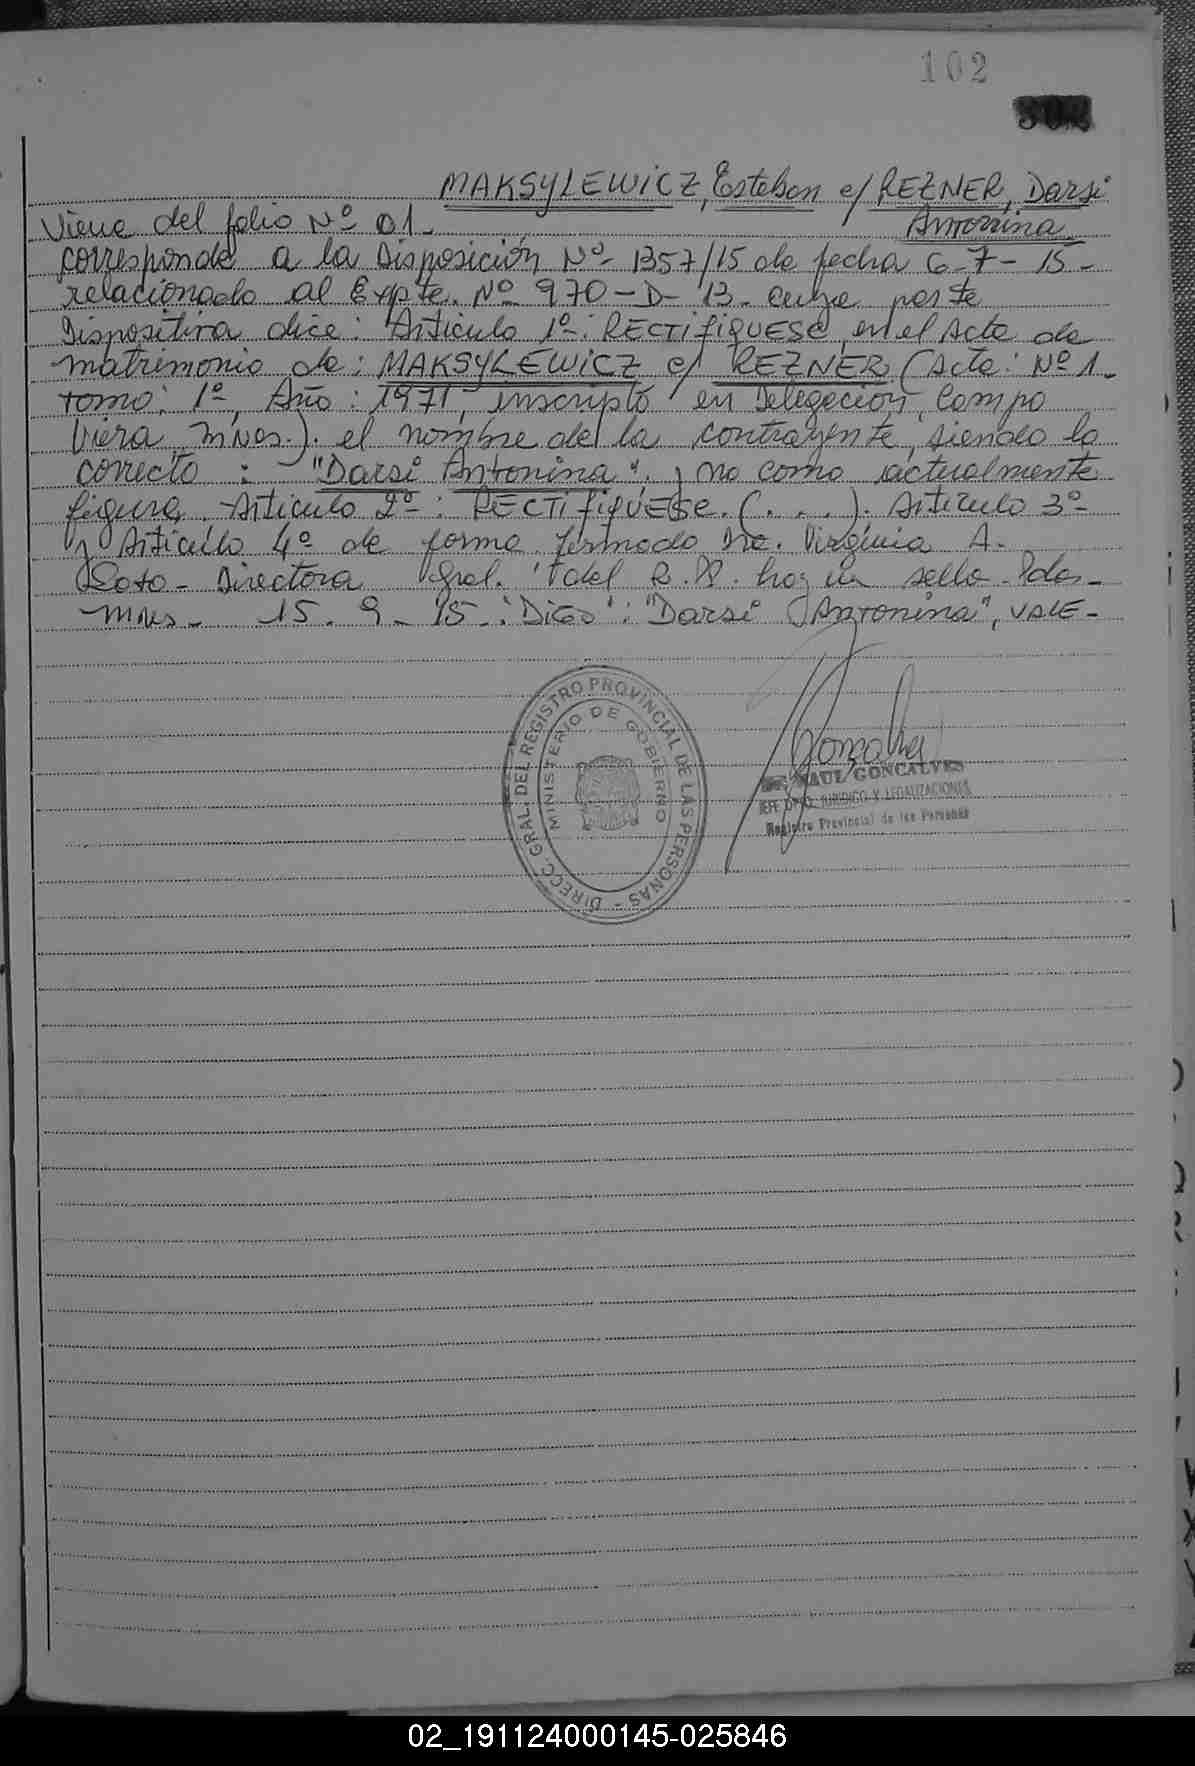 102
MAKSYLEWICZ, Esteban c/ REZNER, Darsi
Viene del folio Nº 01- Antonina
corresponde a la Disposición Nº 1357/15 de fecha 6-7-15-
relacionado al Expte. Nº 970-D-13- cuya parte
Dispositiva dice: Artículo 1º: RECTIFIQUESE, en el Acta de
matrimonio de: MAKSYLEWICZ c/ REZNER (Acta: Nº 1-
Tomo: 1º, Año: 1971, inscripto en Delegación, Campo
Viera, Mnes.). el nombre de la contrayente, siendo lo
correcto: "Darsi Antonina". y no como actualmente
figura. Artículo 2º: RECTIFIQUESE. (...). Artículo 3º
y Artículo 4º de forma firmado Dra. Virginia A.
Soto - Directora Gral. del R.P. hay un sello. Pdas-
Mnes- 15-9-15-: Digo: "Darsi Antonina", VALE-
DIRECC. GRAL. DEL REGISTRO PROVINCIAL DE LAS PERSONAS -
MINISTERIO DE GOBIERNO
RAUL GONCALVES
JEFE DPTO. JURIDICO Y LEGALIZACIONES
Registro Provincial de las Personas
02_191124000145-025846